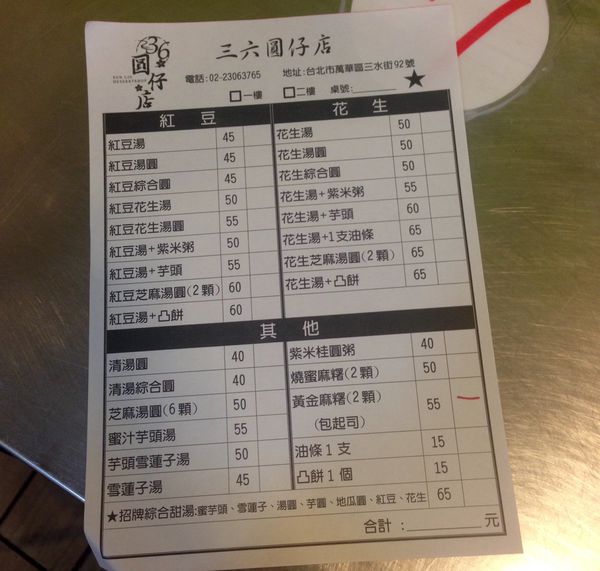 36圓仔店
三六圓仔店
電話:02-23063765 地址:台北市萬華區三水街92號
□一樓 □二樓 桌號:______ ★
紅豆
紅豆湯 45
紅豆湯圓 45
紅豆綜合圓 45
紅豆花生湯 50
紅豆花生湯圓 55
紅豆湯+紫米粥 50
紅豆湯+芋頭 55
紅豆芝麻湯圓(2顆) 60
紅豆湯+凸餅 60
花生
花生湯 50
花生湯圓 50
花生綜合圓 50
花生湯+紫米粥 55
花生湯+芋頭 60
花生湯+1支油條 65
花生芝麻湯圓(2顆) 65
花生湯+凸餅 65
其他
清湯圓 40
清湯綜合圓 40
芝麻湯圓(6顆) 50
蜜汁芋頭湯 55
芋頭雪蓮子湯 50
雪蓮子湯 45
紫米桂圓粥 40
燒蜜麻糬(2顆) 50
黃金麻糬(2顆) 55
(包起司)
油條1支 15
凸餅1個 15
★招牌綜合甜湯:蜜芋頭、雪蓮子、湯圓、芋圓、地瓜圓、紅豆、花生 65
合計:______元